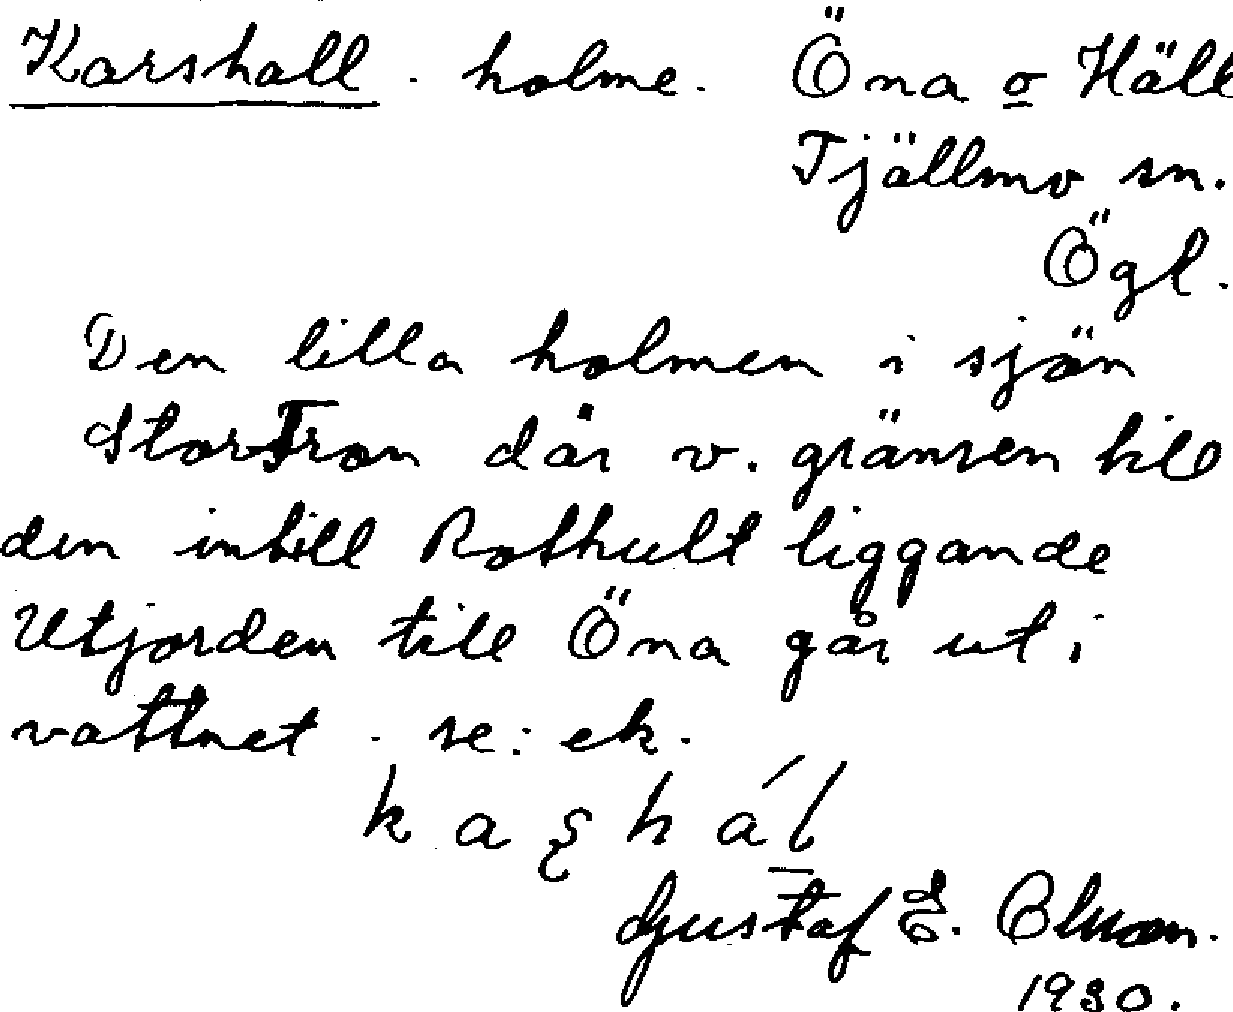 Karshall - holme. Öna o Häll
Tjällmo sn.
Ögl.
Den lilla holmen i sjön
Stor Tron där v. gränsen till
den intill Rothult liggande
Utjorden till Öna går ut i
vattnet. se: ek.
Gustaf E.
1930.